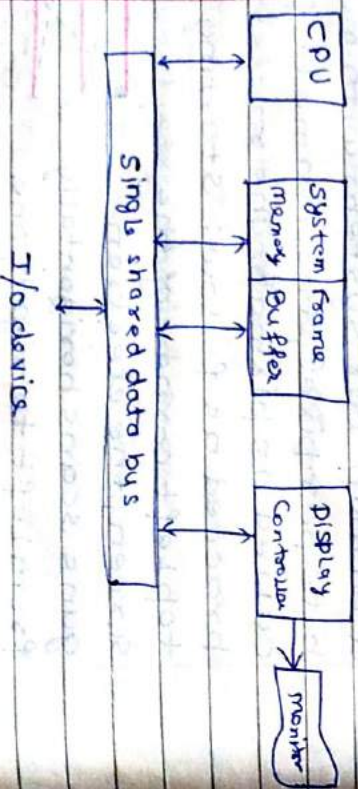 CPU
System
Memory
Frame
Buffer
Display
Controller
Monitor
Single shared data bus
I/o device